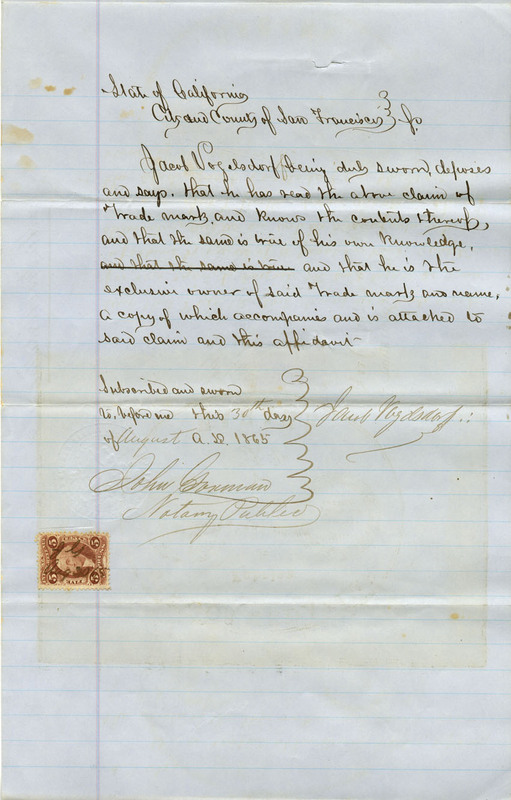 State of California
City and County of San Francisco } Ss.
Jacob Vogelsdorf, being duly sworn, deposes
and says, that he has read the above claim of
Trade mark, and knows the contents thereof,
and that the same is true of his own knowledge,
and that the same is true and that he is the
exclusive owner of said Trade mark and name,
a copy of which accompanies and is attached to
said claim and this affidavit
Subscribed and sworn
to before me this 30th day
of August A.D. 1865
Jacob Vogelsdorf
John
Notary Public
5 5